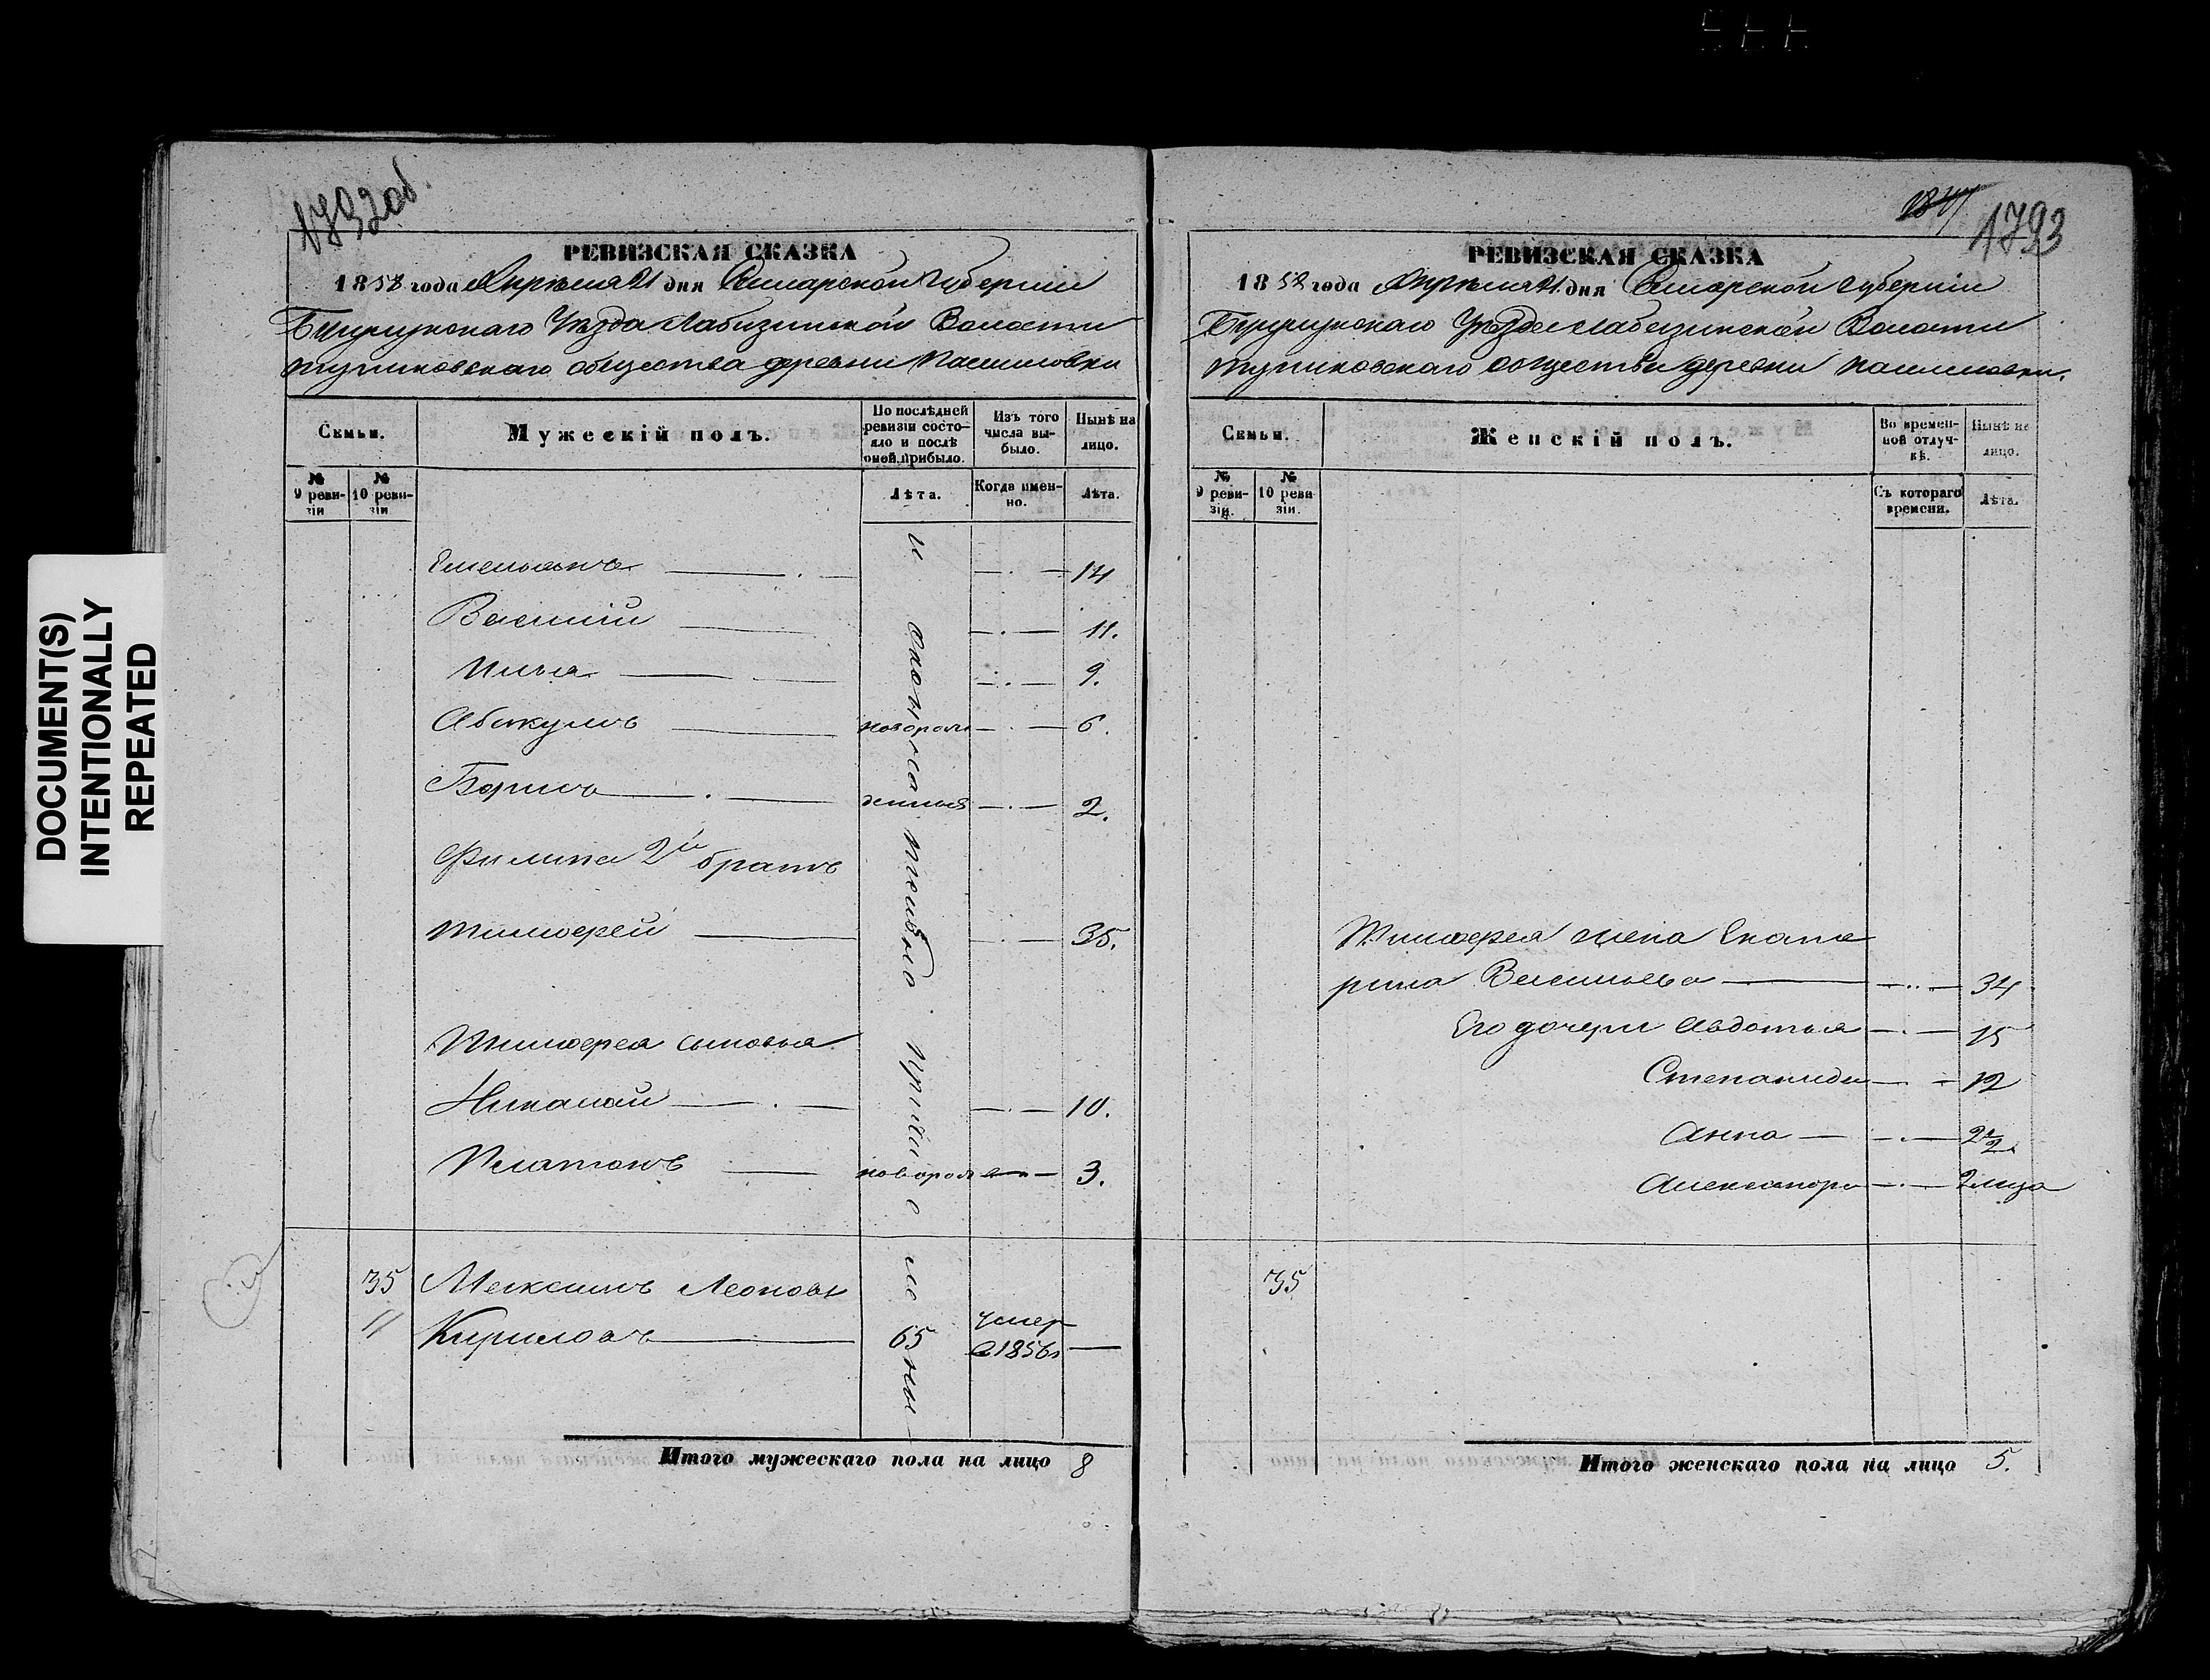 DOCUMENT(S)
INTENTIONALLY
REPEATED
1792об.
РЕВИЗСКАЯ СКАЗКА
1858 года Апрѣля 21 дня Самарской губерніи
Уѣзда Лабазинской Волости
общества деревни
Семьи.
Мужескій полъ.
По послѣдней ревизіи состояло и послѣ оной прибыло.
Изъ того числа выбыло.
Нынѣ на лицо.
№ 9 ревизіи
№ 10 ревизіи
Лѣта.
Когда именно.
Лѣта.
Емельянъ 14
Василій 11.
Илья 9.
Абакумъ новорож 6.
Борисъ денныя 2.
Филипа 2й братъ
Тимофей 35.
Тимофея сыновья
Николай 10.
Платонъ новорож 3.
35 Максимъ Леонов
11 Кириловъ 65 умер в 1856г
Итого мужескаго пола на лицо 8
1793
РЕВИЗСКАЯ СКАЗКА
1858 года Апрѣля 21 дня Самарской губерніи
Уѣзда Лабазинской Волости
общества деревни
Семьи.
Женскій полъ.
Во временной отлучкѣ.
Нынѣ на лицо.
№ 9 ревизіи.
№ 10 ревизіи.
Съ котораго времени.
Лѣта.
Тимофея жена Екате
рина Васильева 34
Его дочери Авдотья 15
Степанида 12
Анна 2½
Александра
35
Итого женскаго пола на лицо 5.